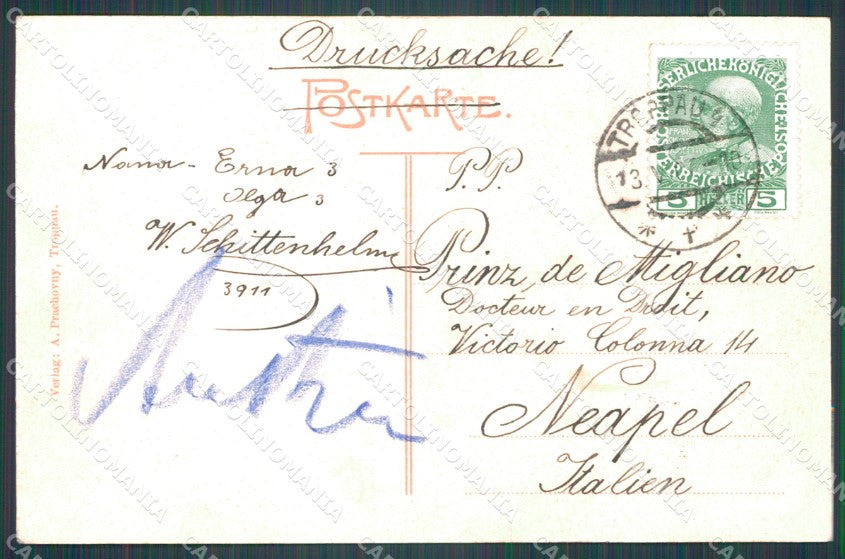 Drucksache!
POSTKARTE.
Nana - Erna 3
Olga 3
W. Schittenhelm
3911
P. P.
Prinz de Migliano
Docteur en Droit,
Victorio Colonna 14
Neapel
Italien
TROPPAU
13.
5 HELLER 5
Verlag: A. Prachovny, Troppau.
CARTOLINOMANIA